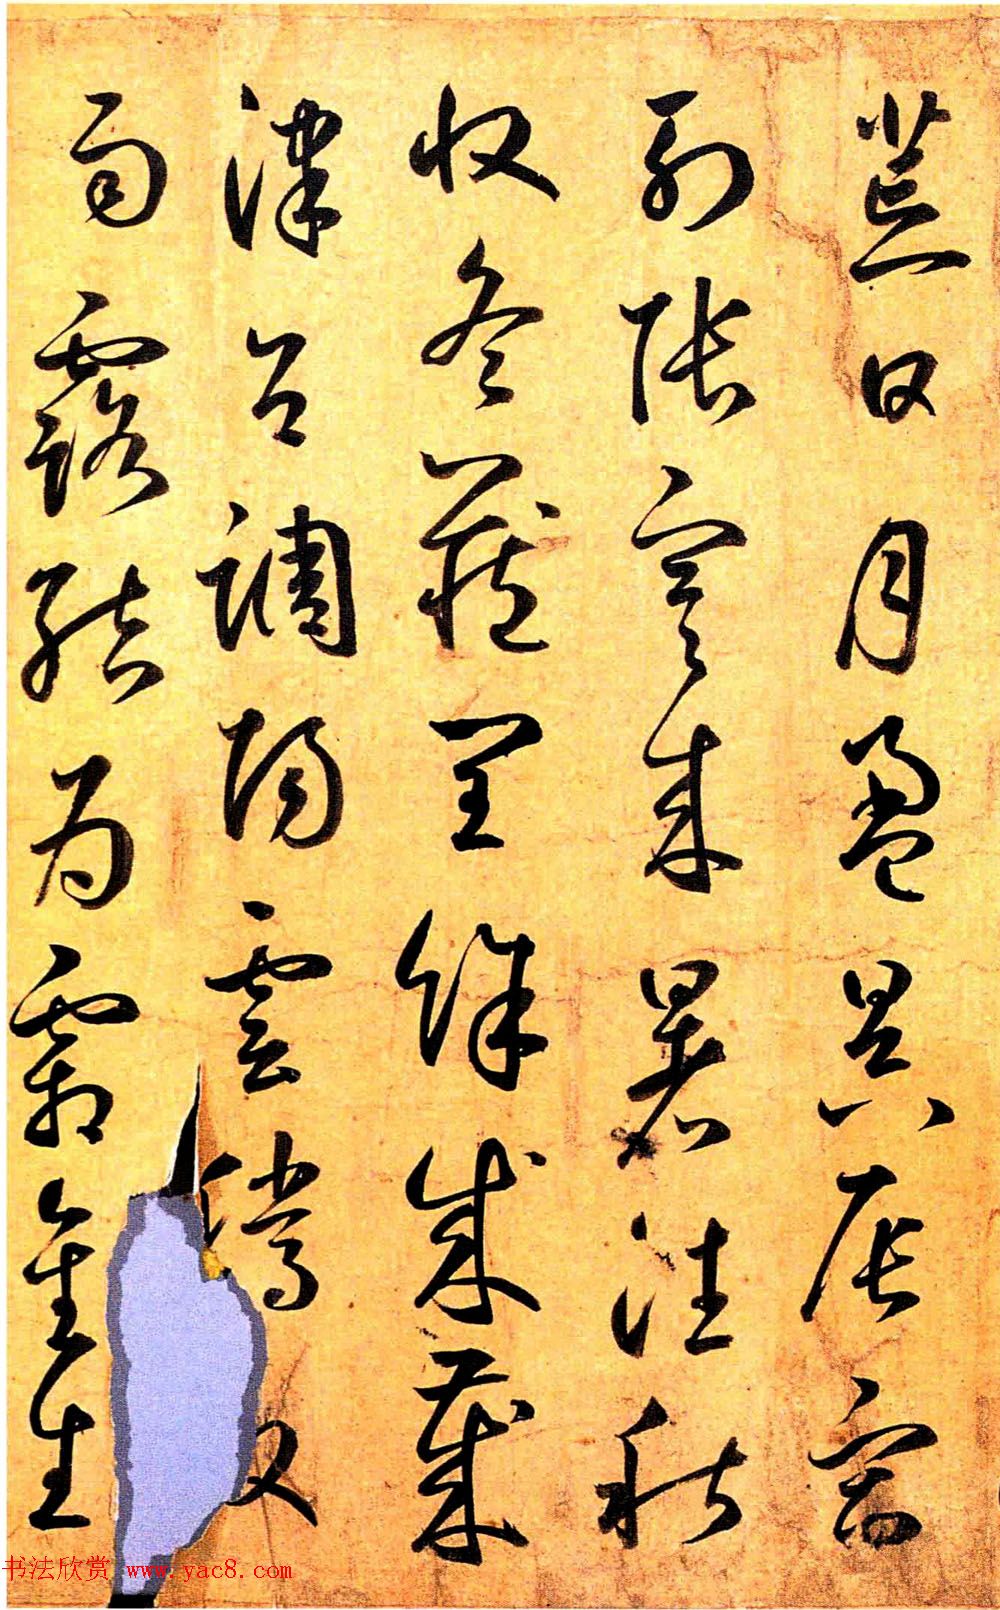 荒日月盈昃辰宿
列張寒來暑往秋
收冬藏閏餘成歲
律呂調陽雲騰致
雨露結為霜金生
书法欣赏 www.yac8.com